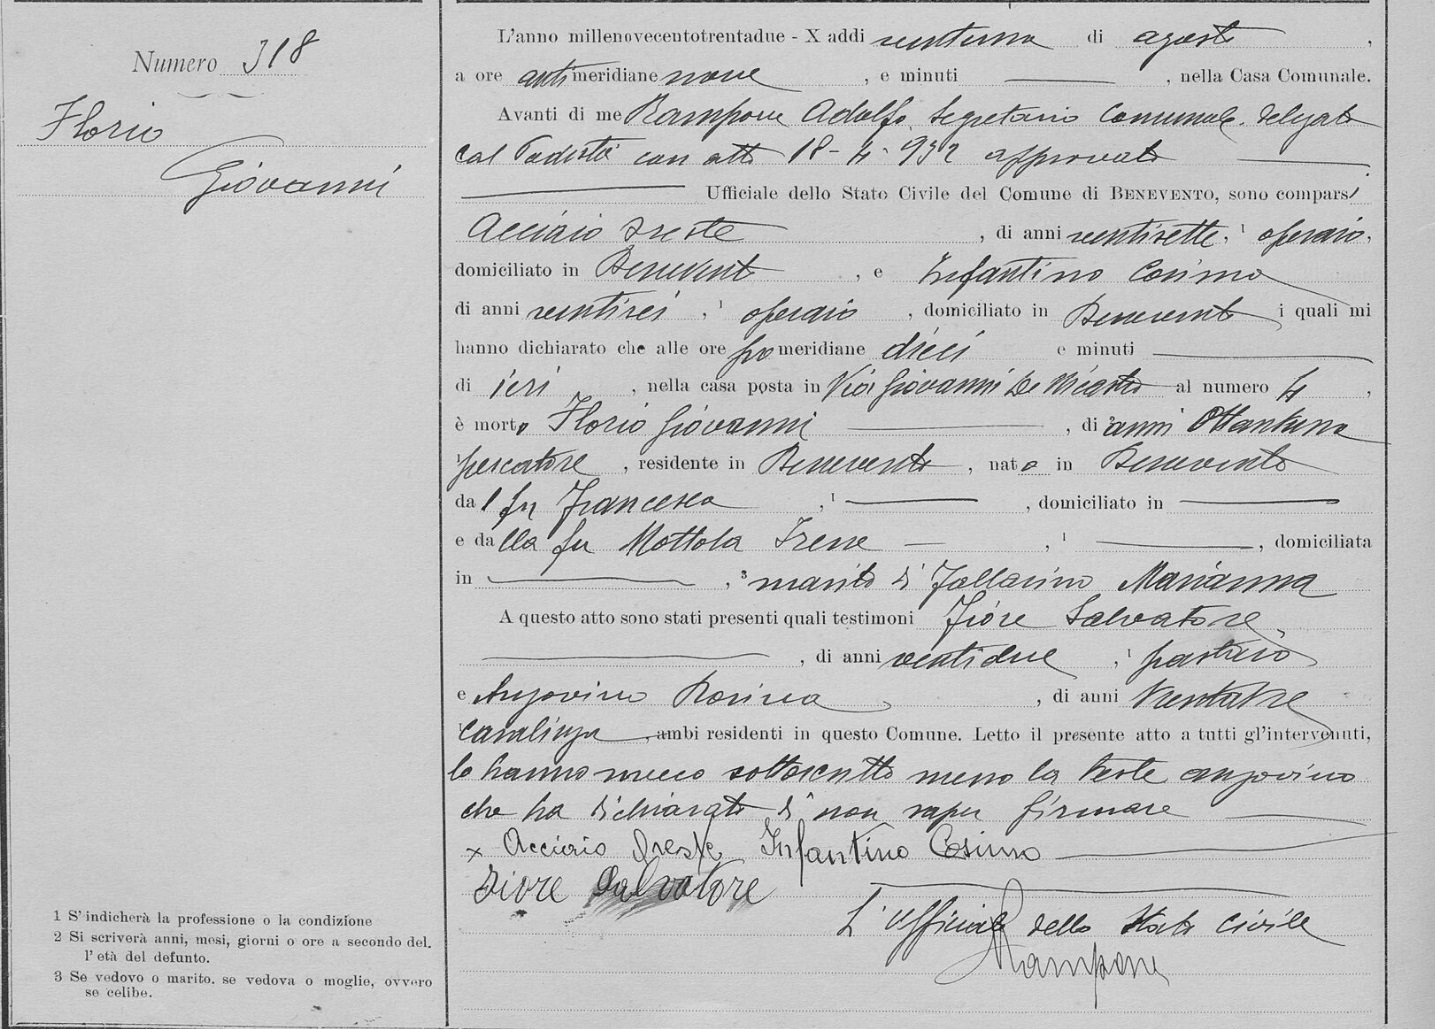 Numero 318
Florio
Giovanni
1 S' indicherà la professione o la condizione
2 Si scriverà anni, mesi, giorni o ore a secondo del.
l' età del defunto.
3 Se vedovo o marito. se vedova o moglie, ovvero
se celibe.
L'anno millenovecentotrentadue - X addì ventuno di agosto,
a ore antimeridiane nove, e minuti, nella Casa Comunale.
Avanti di me Rampone Adolfo, Segretario Comunale delegato
dal Podestà con atto 18-4-932 approvato
Ufficiale dello Stato Civile del Comune di BENEVENTO, sono comparsi
Acciaio Oreste, di anni ventisette, 1 operaio,
domiciliato in Benevento, e Infantino Cosimo
di anni ventisei, 1 operaio, domiciliato in Benevento i quali mi
hanno dichiarato che alle ore pomeridiane dieci e minuti
di ieri, nella casa posta in Via Giovanni De al numero 4,
è morto Florio Giovanni, di 2 anni Ottantuno
1 pescatore, residente in Benevento, nato in Benevento
dal fu Francesco, 1, domiciliato in
e dalla fu Mottola Irene, 1, domiciliata
in, 3 marito di Marianna
A questo atto sono stati presenti quali testimoni Fiore Salvatore
, di anni ventidue, 1 pastaio
e Angovino Rosina, di anni trentatre
1 casalinga, ambi residenti in questo Comune. Letto il presente atto a tutti gl'intervenuti,
lo hanno meco sottoscritto meno la teste angovino
che ha dichiarato di non saper firmare
x Acciaio Oreste, Infantino Cosimo
Fiore Salvatore
L'Ufficiale dello Stato Civile
Rampone